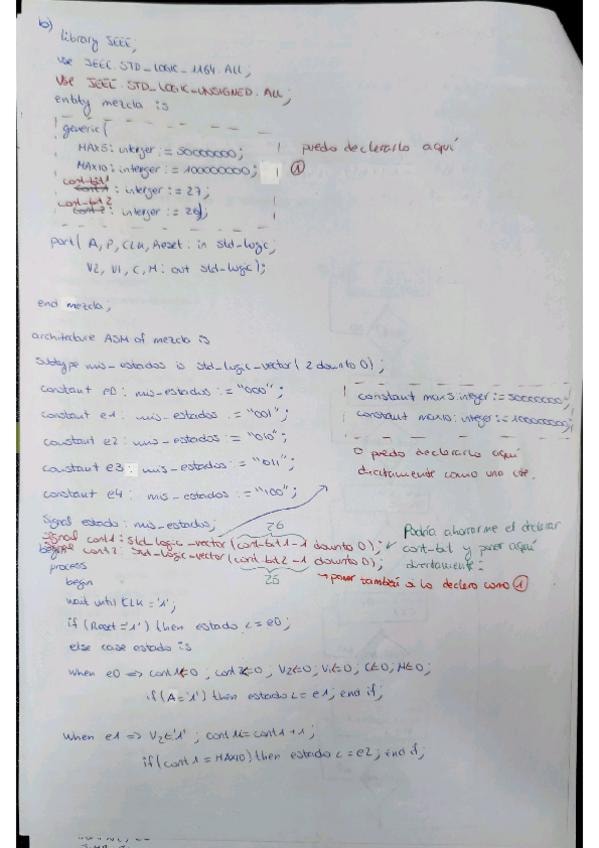 b)
library IEEE;
use IEEE.STD_LOGIC_1164.ALL;
use IEEE.STD_LOGIC_UNSIGNED.ALL;
entity mezcla is
generic(
MAX5: interger := 50000000;
puedo declararlo aquí
MAX10: interger := 100000000;
①
cont-bit1
: interger := 27;
cont-bit2
: interger := 26);
port( A, P, CLK, Reset: in std-logic;
V2, V1, C, M: out std-logic);
end mezcla;
architecture ASM of mezcla is
subtype mis-estados is std-logic-vector(2 downto 0);
constant e0: mis-estados := "000";
constant e1: mis-estados := "001";
constant e2: mis-estados := "010";
constant e3: mis-estados := "011";
constant e4: mis-estados := "100";
constant max5: integer := 50000000;
constant max10: integer := 100000000;
o puedo declararlo aquí
directamente como una cte.
signal estado: mis-estados;
26
signal cont1: std-logic-vector(cont-bit1-1 downto 0);
cont2: std-logic-vector(cont-bit2-1 downto 0);
25
Podría ahorrarme el declarar
cont-bit y poner aquí
directamente:
→ poner también si lo declaro como ①
process
begin
wait until CLK = '1';
if (Reset='1') then estado <= e0;
else case estado is
when e0 => cont1<=0; cont2<=0; V2<=0; V1<=0; C<=0; M<=0;
if(A='1') then estado <= e1; end if;
when e1 => V2<='1'; cont1<=cont1+1;
if(cont1 = MAX10) then estado <= e2; end if;